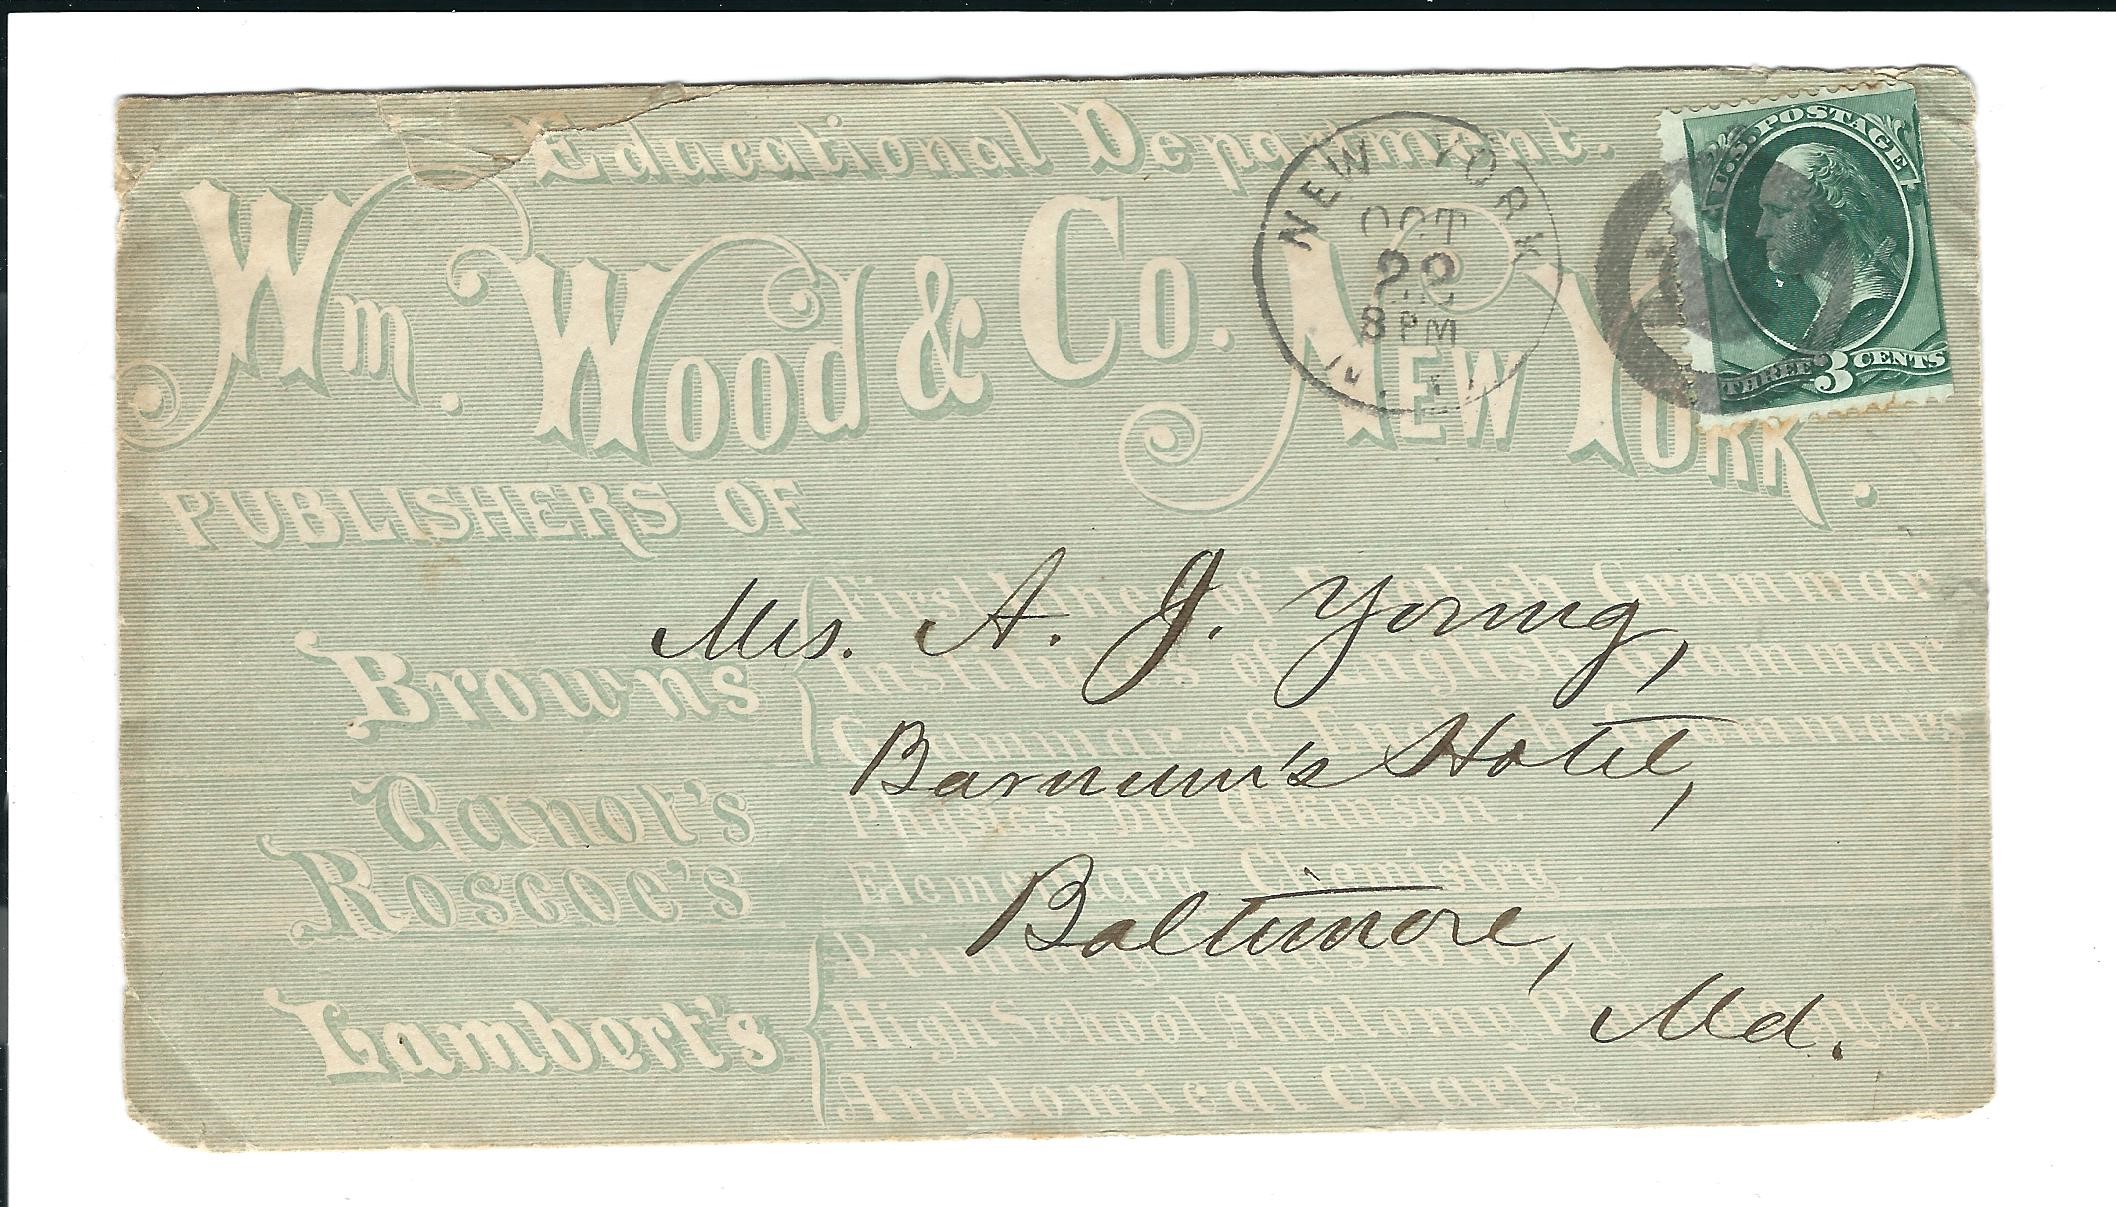 Educational Department.
Wm. Wood & Co. New York.
PUBLISHERS OF
Brown's
First Lines of English Grammar
Institutes of English Grammar
Grammar of English Grammars
Ganot's Physics, by Atkinson.
Roscoe's Elementary Chemistry
Lambert's
Primary Physiology
High School Anatomy Physiology &c.
Anatomical Charts
NEW YORK
OCT
8 PM
N.Y.
U.S. POSTAGE
THREE 3 CENTS
Mrs. A. J. Young,
Barnum's Hotel,
Baltimore,
Md.